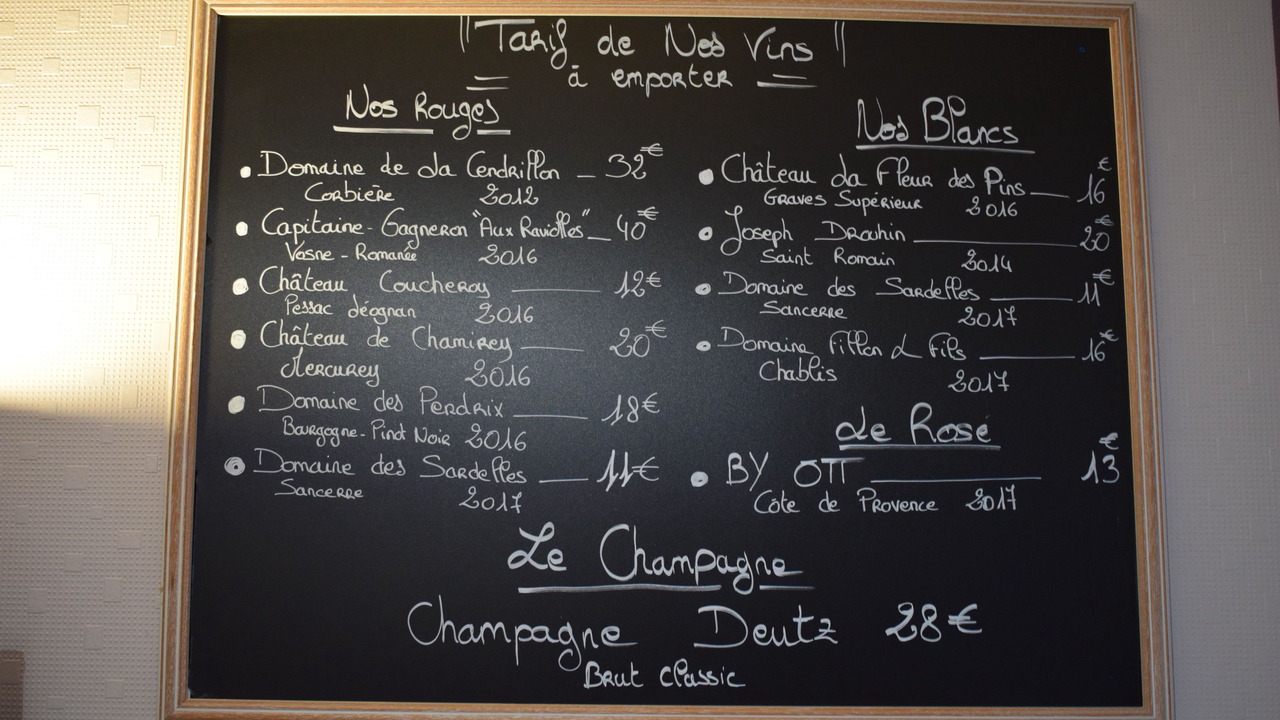 "Tarif de Nos Vins"
à emporter
Nos Rouges
• Domaine de La Cendrillon – 32€
Corbière 2012
• Capitaine-Gagneron "Aux Raviolles" – 40€
Vosne-Romanée 2016
• Château Coucheroy — 12€
Pessac Léognan 2016
• Château de Chamirey — 20€
Mercurey 2016
• Domaine des Perdrix — 18€
Bourgogne-Pinot Noir 2016
• Domaine des Sardelles — 11€
Sancerre 2017
Nos Blancs
• Château La Fleur des Pins — 16€
Graves Supérieur 2016
• Joseph Drouhin — 20€
Saint Romain 2014
• Domaine des Sardelles — 11€
Sancerre 2017
• Domaine Fillon & Fils — 16€
Chablis 2017
Le Rosé
• BY OTT — 13€
Côte de Provence 2017
Le Champagne
Champagne Deutz 28€
Brut Classic